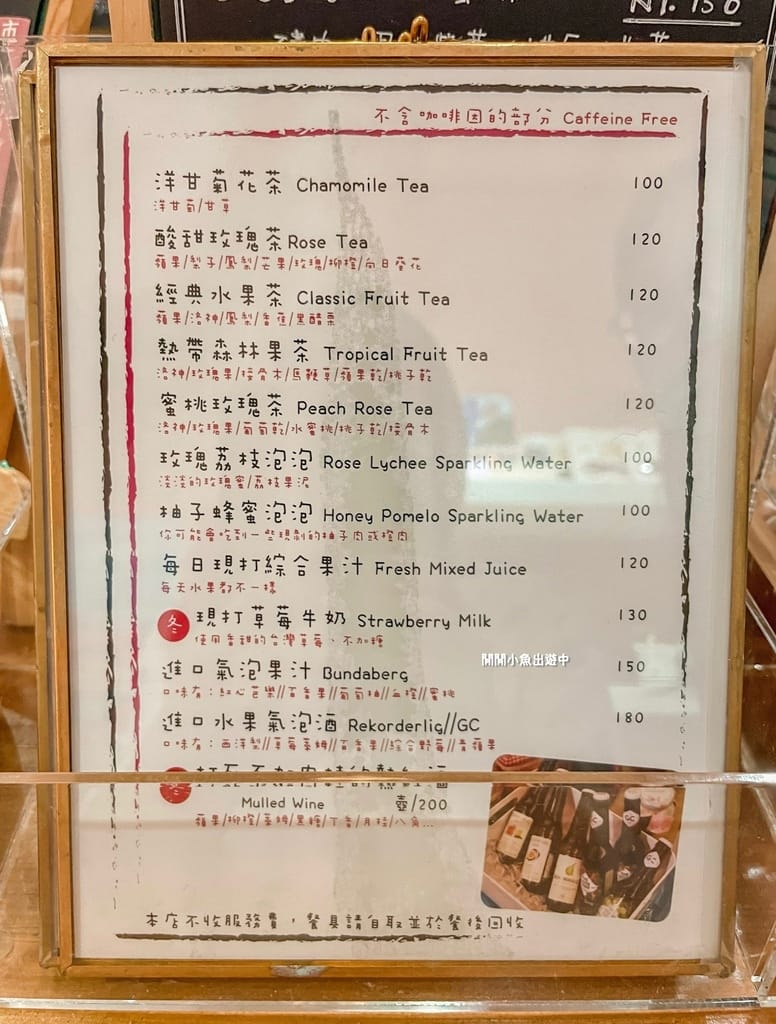 NT.150
不含咖啡因的部分 Caffeine Free
洋甘菊花茶 Chamomile Tea 100
洋甘菊/甘草
酸甜玫瑰茶 Rose Tea 120
蘋果/梨子/鳳梨/芒果/玫瑰/柳橙/向日葵花
經典水果茶 Classic Fruit Tea 120
蘋果/洛神/鳳梨/香蕉/黑醋栗
熱帶森林果茶 Tropical Fruit Tea 120
洛神/玫瑰果/接骨木/馬鞭草/蘋果乾/桃子乾
蜜桃玫瑰茶 Peach Rose Tea 120
洛神/玫瑰果/葡萄乾/水蜜桃/桃子乾/接骨木
玫瑰荔枝泡泡 Rose Lychee Sparkling Water 100
淡淡的玫瑰蜜/荔枝果泥
柚子蜂蜜泡泡 Honey Pomelo Sparkling Water 100
你可能會吃到一些現剝的柚子肉或橙肉
每日現打綜合果汁 Fresh Mixed Juice 120
每天水果都不一樣
冬 現打草莓牛奶 Strawberry Milk 130
使用香甜的台灣草莓、不加糖
進口氣泡果汁 Bundaberg 150
口味有：紅心芭樂//百香果//葡萄柚//血橙//蜜桃
進口水果氣泡酒 Rekorderlig//GC 180
口味有：西洋梨//草莓萊姆//百香果//綜合野莓//青蘋果
冬
Mulled Wine 壺/200
蘋果/柳橙/萊姆/黑糖/丁香/月桂/八角...
本店不收服務費，餐具請自取並於餐後回收
鬧鬧小魚出遊中